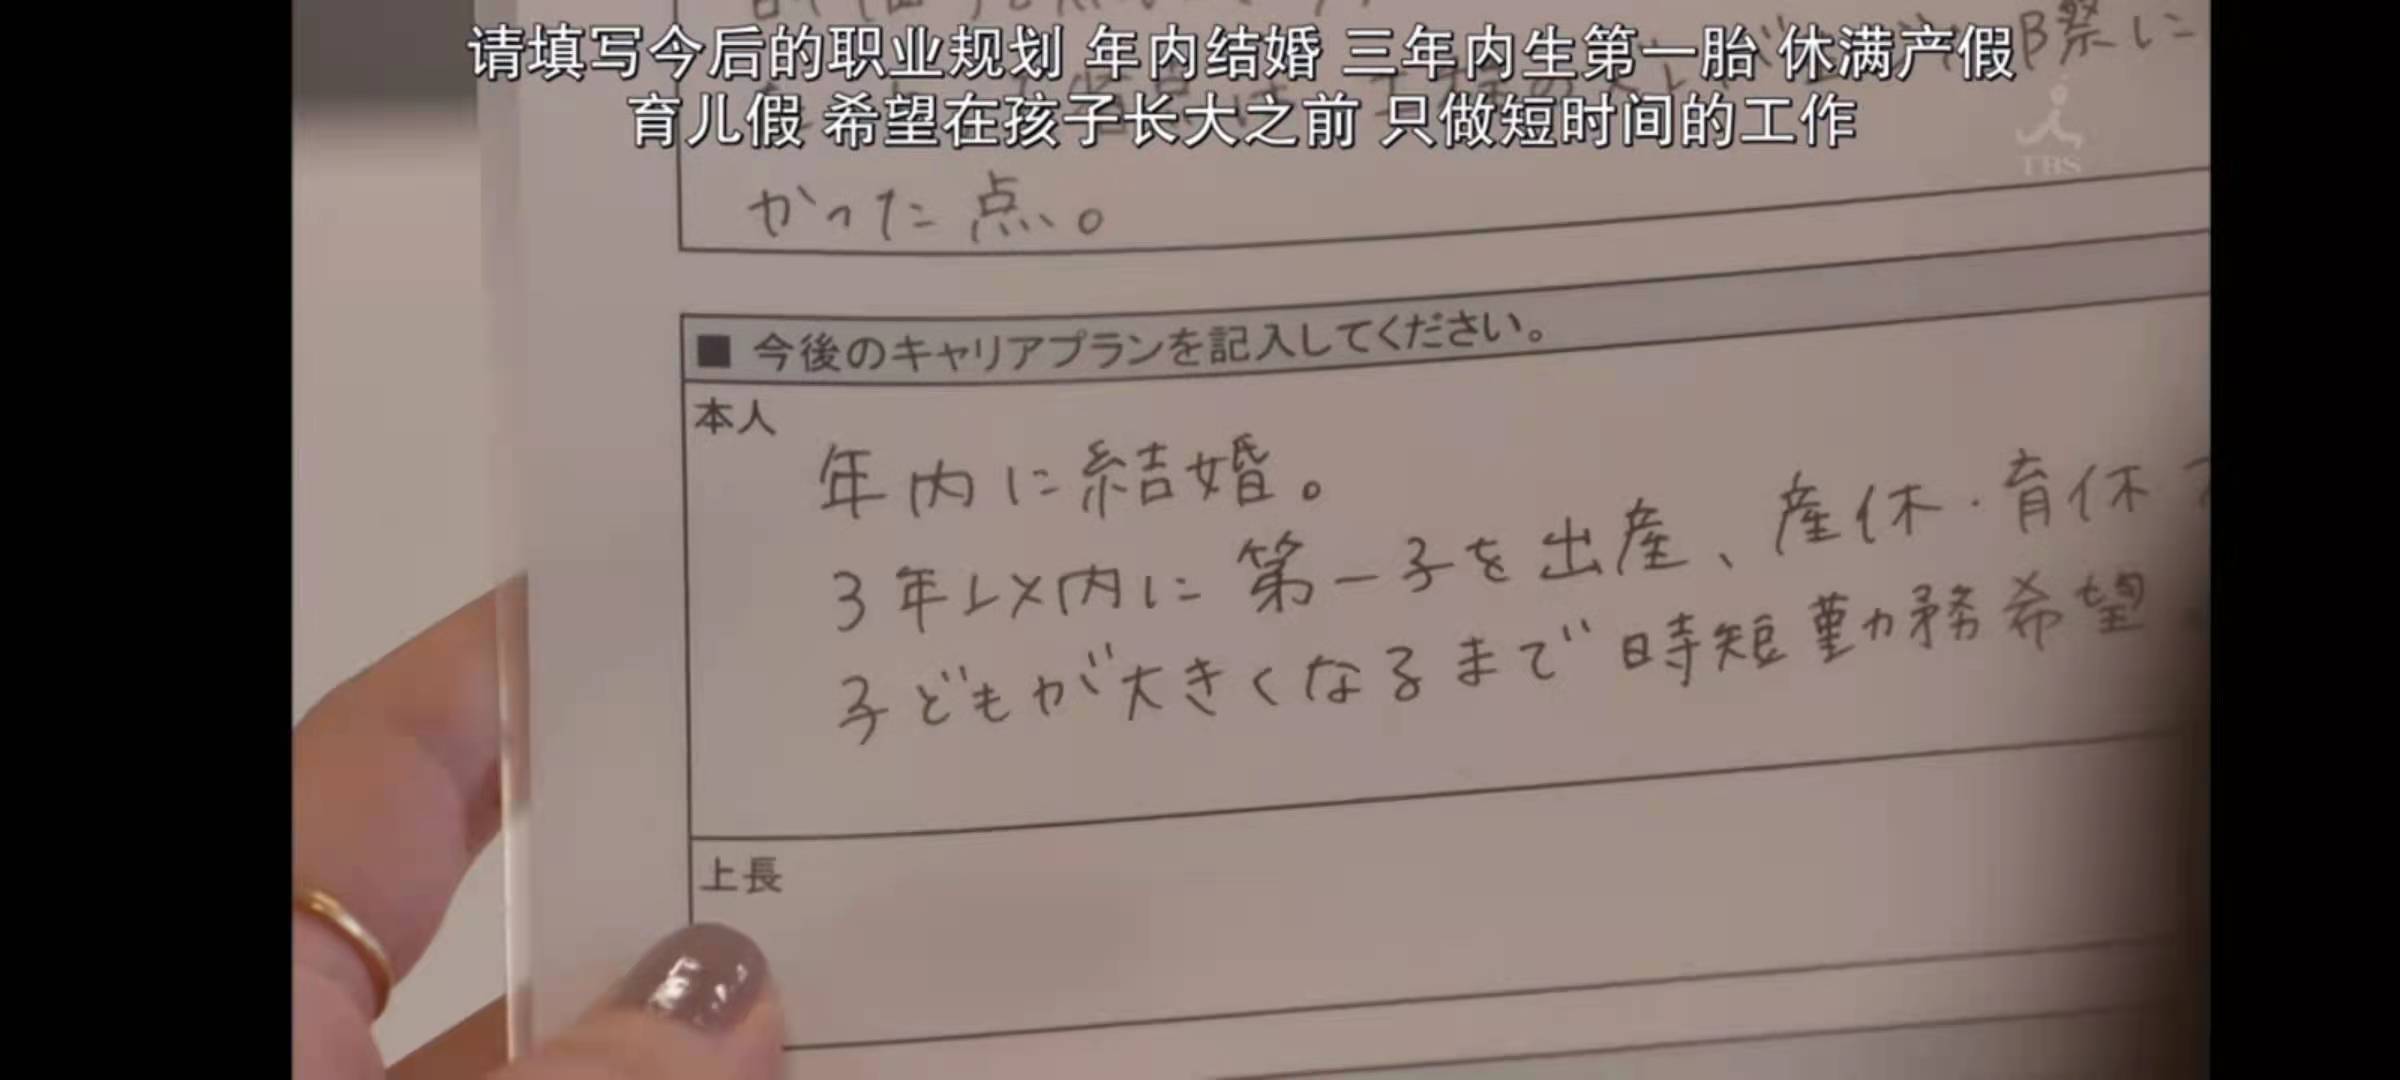 请填写今后的职业规划 年内结婚 三年内生第一胎 休满产假
育儿假 希望在孩子长大之前 只做短时间的工作
TBS
かった点。
■ 今後のキャリアプランを記入してください。
本人
年内に結婚。
3年以内に第一子を出産、産休・育休
子どもが大きくなるまで時短勤務希望
上長